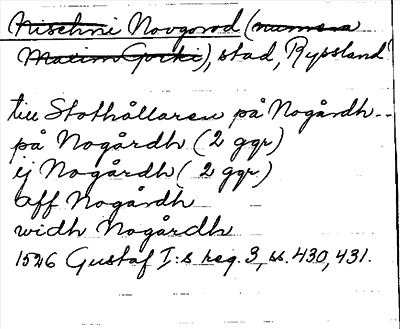 Nischni Novgorod (numera
Maxim Gorki), stad, Ryssland
till Stothållaren på Nogårdh..
på Nogårdh (2 ggr)
ij Nogårdh (2 ggr)
aff Nogårdh
widh Nogårdh
1526 Gustaf I:s reg. 3, ss. 430, 431.